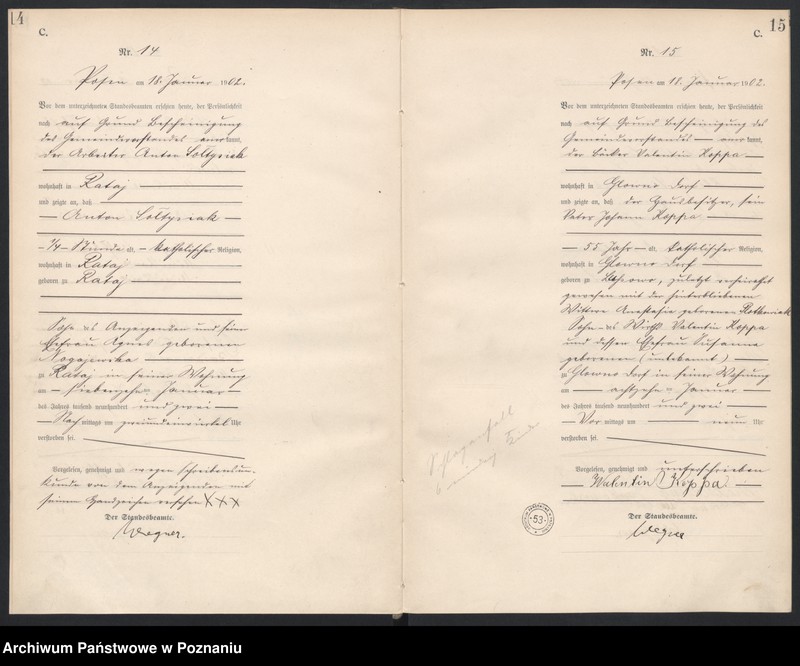 14
C.
Nr. 14
Posen am 18. Januar 1902.
Vor dem unterzeichneten Standesbeamten erschien heute, der Persönlichkeit
nach auf Grund Bescheinigung
des Gemeindevorstandes anerkannt,
der Arbeiter Anton Soltysiak
wohnhaft in Rataj
und zeigte an, daß
Anton Soltysiak
1/4 Stunde alt, katholischer Religion,
wohnhaft in Rataj
geboren zu Rataj
Sohn des Anzeigenden und seiner
Ehefrau Agnes geborenen
zu Rataj in seiner Wohnung
am siebenzehn Januar
des Jahres tausend neunhundert und zwei
Nach mittags um Uhr
verstorben sei.
Vorgelesen, genehmigt und wegen Schreibensun-
kunde von dem Anzeigenden mit
seinem Handzeichen versehen XXX
Der Standesbeamte.
Wegner.
15
C.
Nr. 15
Posen am 18. Januar 1902.
Vor dem unterzeichneten Standesbeamten erschien heute, der Persönlichkeit
nach auf Grund Bescheinigung des
Gemeindevorstandes anerkannt,
der Bäcker Valentin Koppa
wohnhaft in Glowno Dorf
und zeigte an, daß der Hausbesitzer, sein
Vater Johann Koppa
55 Jahr alt, katholischer Religion,
wohnhaft in Glowno Dorf
geboren zu zuletzt verheirathet
gewesen mit der hinterbliebenen
Wittwe Anastasia geborenen
Sohn des Wirths Valentin Koppa
und dessen Ehefrau Susanna
geborenen (unbekannt)
zu Glowno Dorf in seiner Wohnung
am achtzehn Januar
des Jahres tausend neunhundert und zwei
Vor mittags um neun Uhr
verstorben sei.
Vorgelesen, genehmigt und unterschrieben
Walentin Koppa
Der Standesbeamte.
Wegner
53
Archiwum Państwowe w Poznaniu